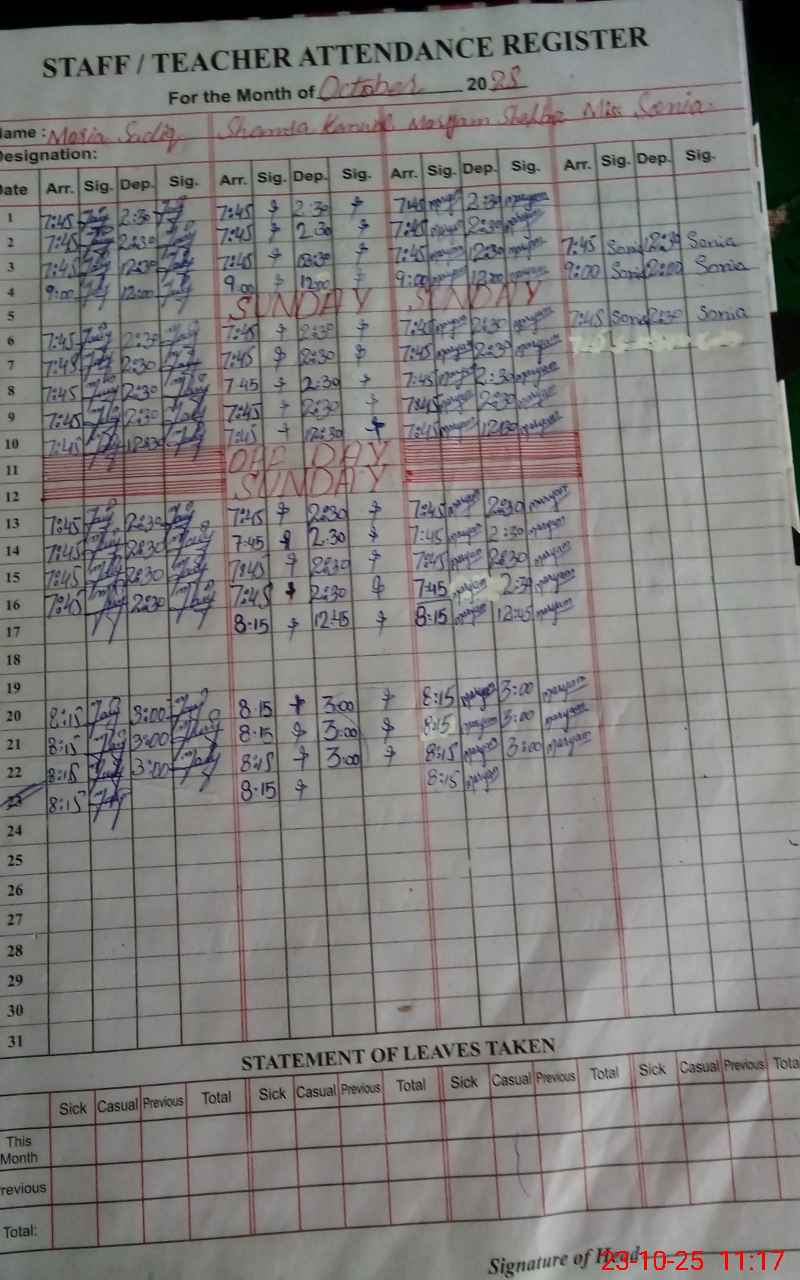 STAFF / TEACHER ATTENDANCE REGISTER
For the Month of October 2025
Name : Maria Sadiq Shamsa Kanwal Maryam Miss Sonia
Designation:
Date Arr. Sig. Dep. Sig. Arr. Sig. Dep. Sig. Arr. Sig. Dep. Sig. Arr. Sig. Dep. Sig.
1 7:45 2:30 7:45 2:30 7:45 maryam 2:30 maryam
2 7:45 2:30 7:45 2:30 7:45 maryam 2:30 maryam
3 7:45 12:30 7:45 12:30 7:45 maryam 12:30 maryam 7:45 Sonia 12:30 Sonia
4 9:00 12:00 9:00 12:00 9:00 maryam 12:00 maryam 9:00 Sonia 12:00 Sonia
5 SUNDAY SUNDAY
6 7:45 2:30 7:45 2:30 7:45 maryam 2:30 maryam 7:45 Sonia 2:30 Sonia
7 7:45 2:30 7:45 2:30 7:45 maryam 2:30 maryam
8 7:45 2:30 7:45 2:30 7:45 maryam 2:30 maryam
9 7:45 2:30 7:45 2:30 7:45 maryam 2:30 maryam
10 7:45 12:30 7:45 12:30 7:45 maryam 12:30 maryam
11 OFF DAY
12 SUNDAY
13 7:45 2:30 7:45 2:30 7:45 maryam 2:30 maryam
14 7:45 2:30 7:45 2:30 7:45 maryam 2:30 maryam
15 7:45 2:30 7:45 2:30 7:45 maryam 2:30 maryam
16 7:45 2:30 7:45 2:30 7:45 maryam 2:30 maryam
17 8:15 12:45 8:15 maryam 12:45 maryam
18
19
20 8:15 3:00 8:15 3:00 8:15 maryam 3:00 maryam
21 8:15 3:00 8:15 3:00 8:15 maryam 3:00 maryam
22 8:15 3:00 8:15 3:00 8:15 maryam 3:00 maryam
23 8:15 8:15 8:15 maryam
24
25
26
27
28
29
30
31
STATEMENT OF LEAVES TAKEN
Sick Casual Previous Total Sick Casual Previous Total Sick Casual Previous Total Sick Casual Previous Tota
This
Month
revious
Total:
Signature of Head
23-10-25 11:17